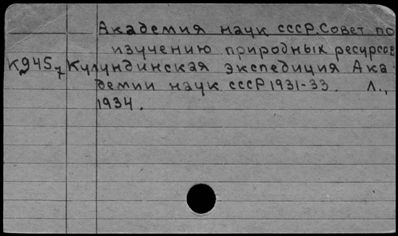 Академия наук СССР. Совет по
изучению природных ресурсов
К945₇ Кулундинская экспедиция Ака-
демии наук СССР 1931-33. Л.,
1934.